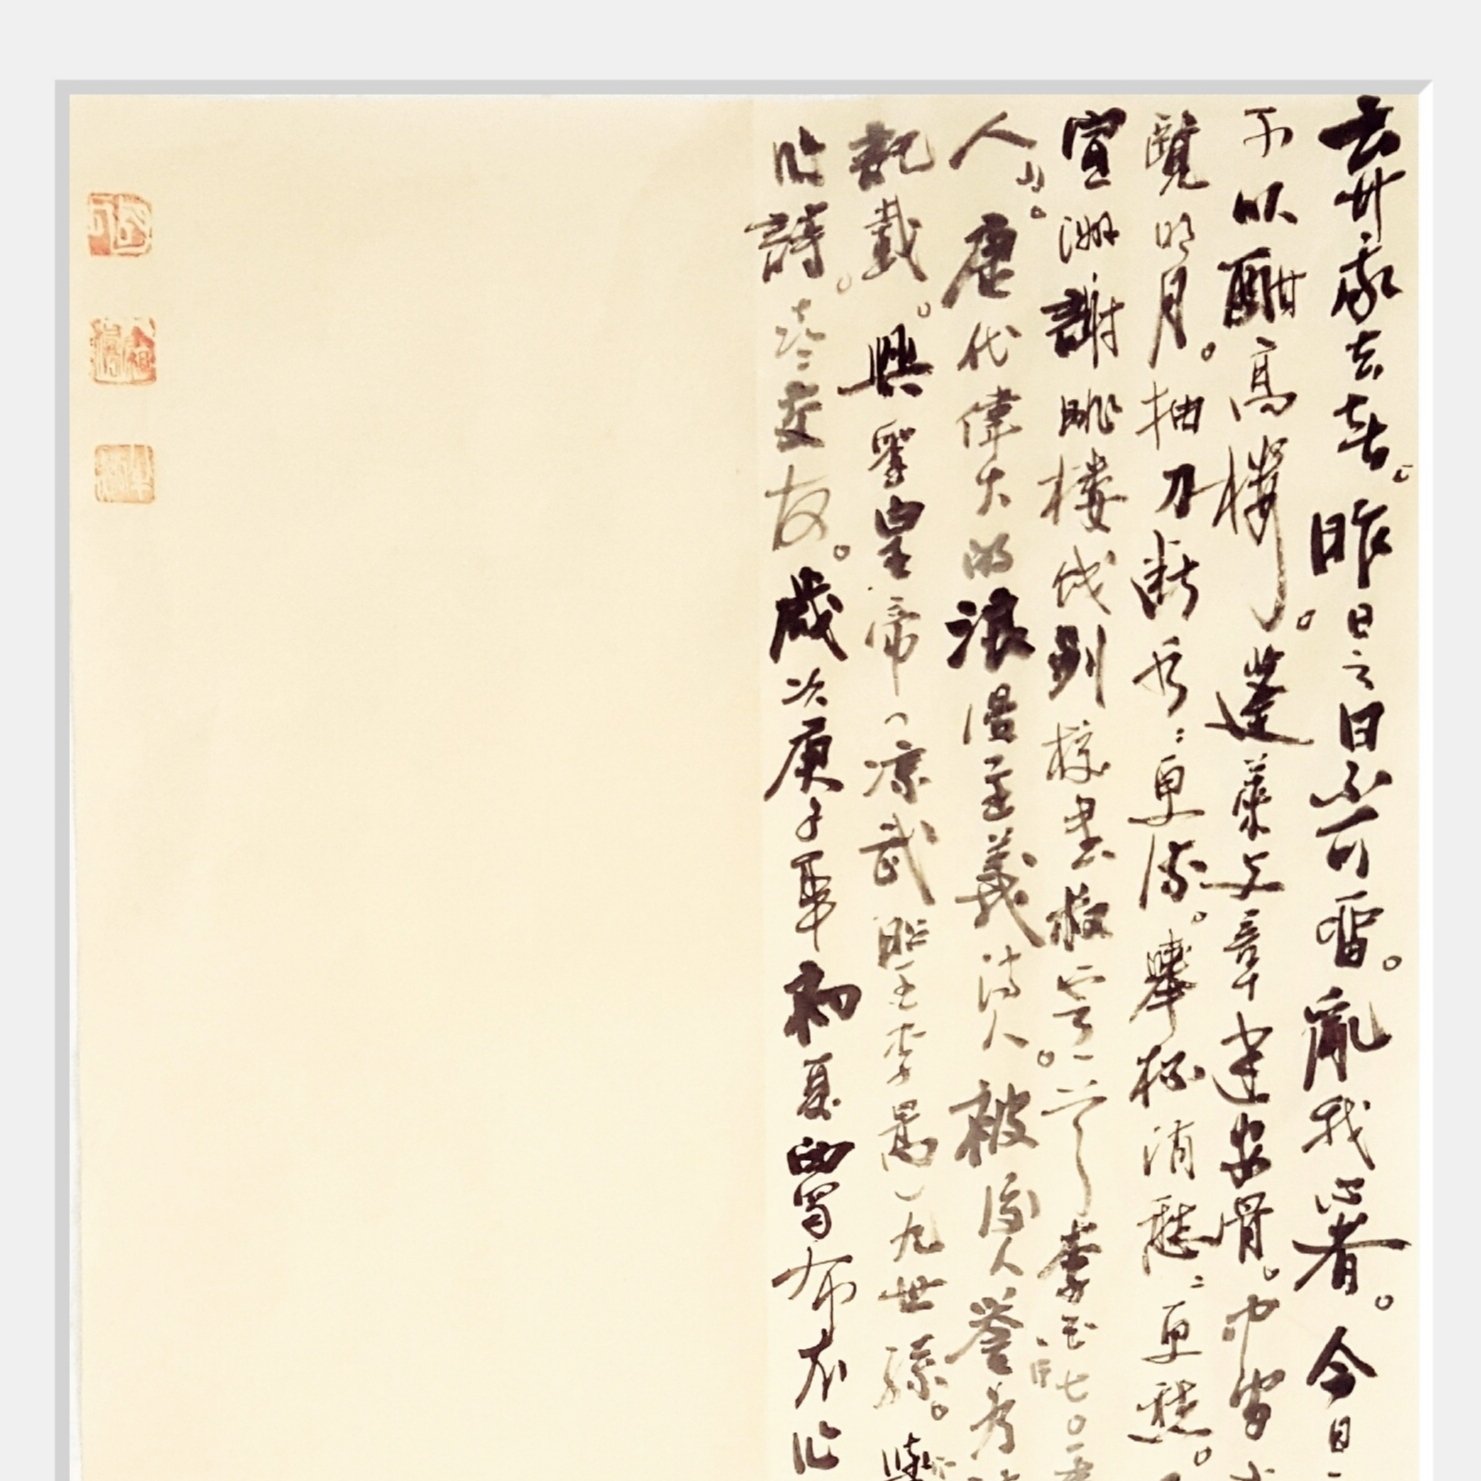 弃我去者。昨日之日不可留。亂我心者。今日
可以酣高樓。蓬萊文章建安骨。中間
覽明月。抽刀斷水〻更流。舉杯消愁〻更愁。
宣洲謝眺樓餞別校書叔雲 李白七〇一
人。唐代偉大的浪漫主義詩人。被後人譽為詩
記載。興聖皇帝(凉武昭王李暠)九世孫。與
作詩。交友。歲次庚子年初夏西蜀布衣作